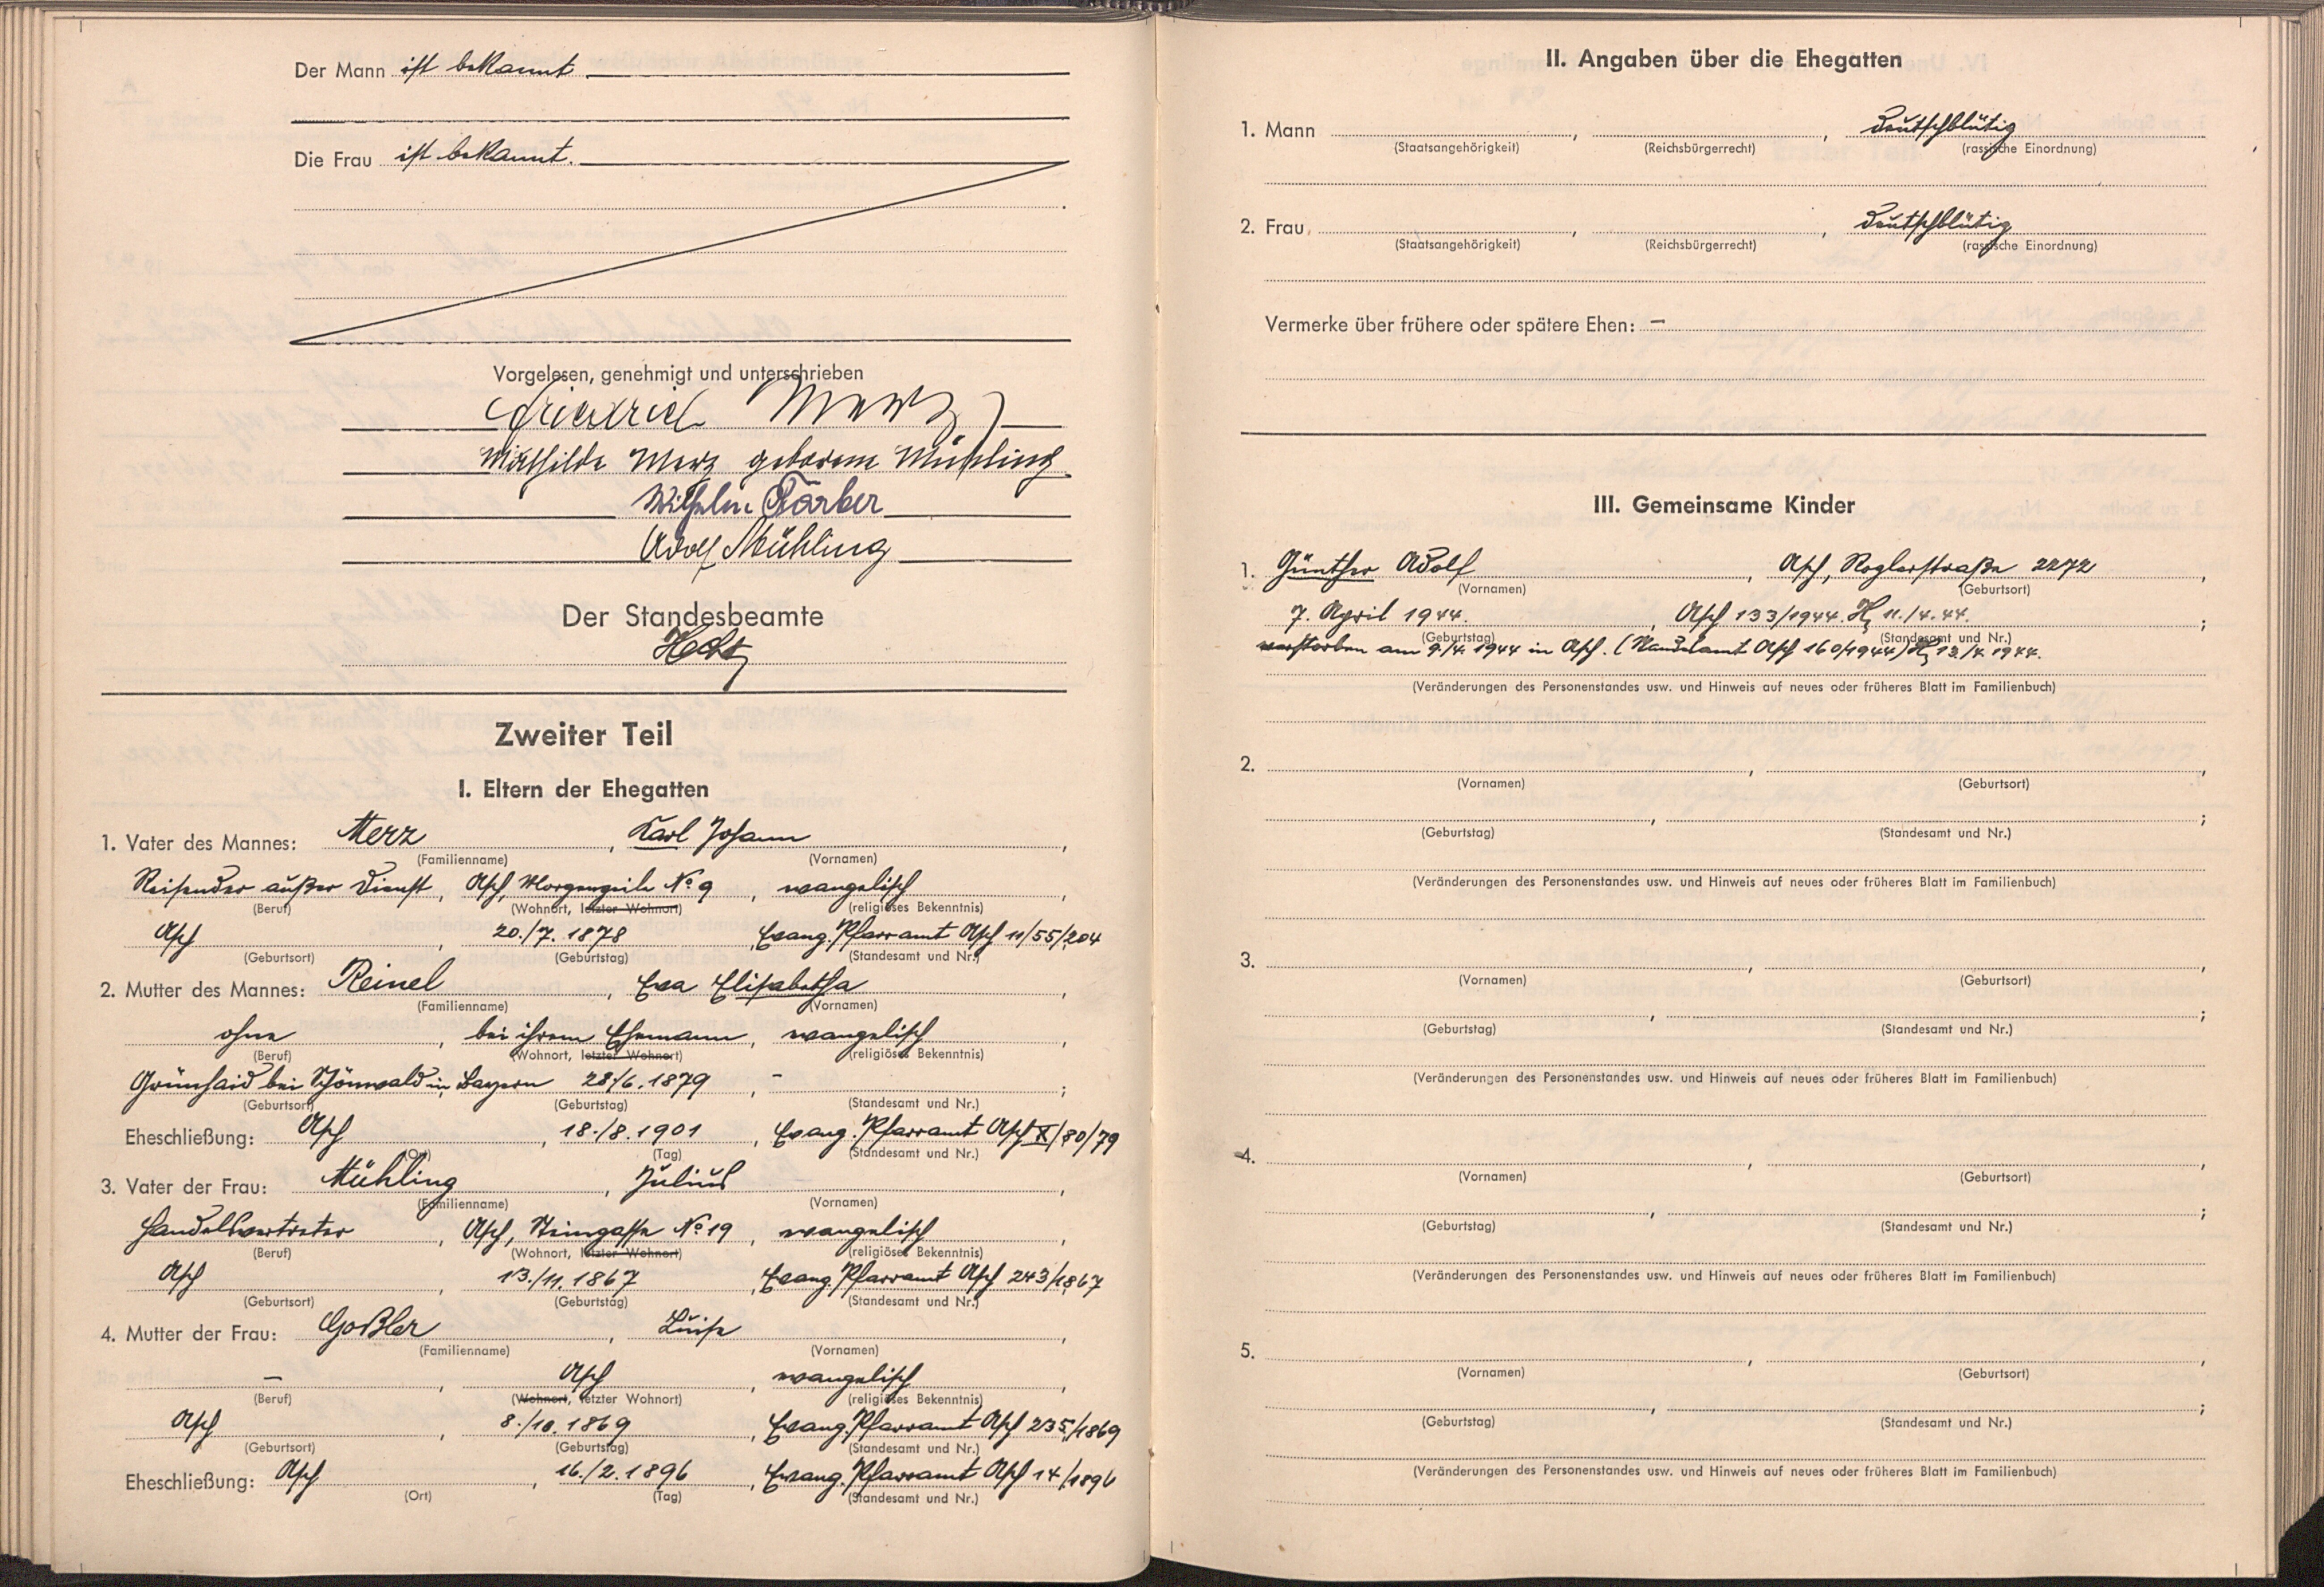 Der Mann ist bekannt
Die Frau ist bekannt.
Vorgelesen, genehmigt und unterschrieben
Friedrich Merz
Mathilde Merz geborene Mühling
Wilhelm Färber
Adolf Mühling
Der Standesbeamte
Zweiter Teil
I. Eltern der Ehegatten
1. Vater des Mannes: Merz, Karl Johann,
(Familienname) (Vornamen)
Reisender außer Dienst, Asch, Morgenzeile No 9, evangelisch,
(Beruf) (Wohnort, letzter Wohnort) (religiöses Bekenntnis)
Asch, 20./7. 1878, Evang. Pfarramt Asch 11/55/204
(Geburtsort) (Geburtstag) (Standesamt und Nr.)
2. Mutter des Mannes: Reinel, Eva Elisabetha,
(Familienname) (Vornamen)
ohne, bei ihrem Ehemann, evangelisch,
(Beruf) (Wohnort, letzter Wohnort) (religiöses Bekenntnis)
Grünhaid bei Schönwald in Bayern 28./6. 1879, - ;
(Geburtsort) (Geburtstag) (Standesamt und Nr.)
Eheschließung: Asch, 18./8. 1901, Evang. Pfarramt Asch X/80/79
(Ort) (Tag) (Standesamt und Nr.)
3. Vater der Frau: Mühling, Julius,
(Familienname) (Vornamen)
Handelsvertreter, Asch, Steingasse No 19, evangelisch,
(Beruf) (Wohnort, letzter Wohnort) (religiöses Bekenntnis)
Asch, 13./11. 1867, Evang. Pfarramt Asch 243/1867
(Geburtsort) (Geburtstag) (Standesamt und Nr.)
4. Mutter der Frau: Goßler, Luise,
(Familienname) (Vornamen)
–, Asch, evangelisch,
(Beruf) (Wohnort, letzter Wohnort) (religiöses Bekenntnis)
Asch, 8./10. 1869, Evang. Pfarramt Asch 235/1869
(Geburtsort) (Geburtstag) (Standesamt und Nr.)
Eheschließung: Asch, 16./2. 1896, Evang. Pfarramt Asch 14/1896
(Ort) (Tag) (Standesamt und Nr.)
II. Angaben über die Ehegatten
1. Mann , , deutschblütig
(Staatsangehörigkeit) (Reichsbürgerrecht) (rassische Einordnung)
2. Frau , , deutschblütig
(Staatsangehörigkeit) (Reichsbürgerrecht) (rassische Einordnung)
Vermerke über frühere oder spätere Ehen: –
III. Gemeinsame Kinder
1. Günther Adolf, Asch, Roglerstraße 2272,
(Vornamen) (Geburtsort)
7. April 1944., Asch 133/1944. H, 11./4. 44. ;
(Geburtstag) (Standesamt und Nr.)
verstorben am 9./4. 1944 in Asch. (Standesamt Asch 160/1944) H, 13./4. 1944.
(Veränderungen des Personenstandes usw. und Hinweis auf neues oder früheres Blatt im Familienbuch)
2. , ,
(Vornamen) (Geburtsort)
, ;
(Geburtstag) (Standesamt und Nr.)
(Veränderungen des Personenstandes usw. und Hinweis auf neues oder früheres Blatt im Familienbuch)
3. , ,
(Vornamen) (Geburtsort)
, ;
(Geburtstag) (Standesamt und Nr.)
(Veränderungen des Personenstandes usw. und Hinweis auf neues oder früheres Blatt im Familienbuch)
4. , ,
(Vornamen) (Geburtsort)
, ;
(Geburtstag) (Standesamt und Nr.)
(Veränderungen des Personenstandes usw. und Hinweis auf neues oder früheres Blatt im Familienbuch)
5. , ,
(Vornamen) (Geburtsort)
, ;
(Geburtstag) (Standesamt und Nr.)
(Veränderungen des Personenstandes usw. und Hinweis auf neues oder früheres Blatt im Familienbuch)